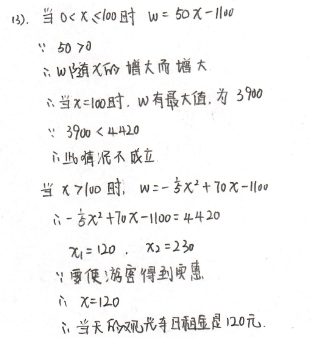 (3). 当 0<x≤100时 w=50x-1100
∵ 50>0
∴ w随x的增大而增大
∴当x=100时, w有最大值, 为 3900
∵ 3900<4420
∴此情况不成立
当 x>100 时, w=-1/5x²+70x-1100
∴ -1/5x²+70x-1100=4420
x₁=120, x₂=230
∵要使游客得到实惠
∴ x=120
∴ 当天的观光车日租金是120元.